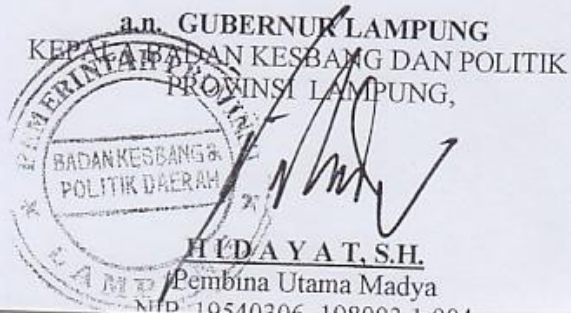 a.n. GUBERNUR LAMPUNG
KEPALA BADAN KESBANG DAN POLITIK
PROVINSI LAMPUNG,
PEMERINTAH PROVINSI
BADAN KESBANG &
POLITIK DAERAH
LAMPUNG
H I D A Y A T, S.H.
Pembina Utama Madya
NIP. 19540306 198003 1 004